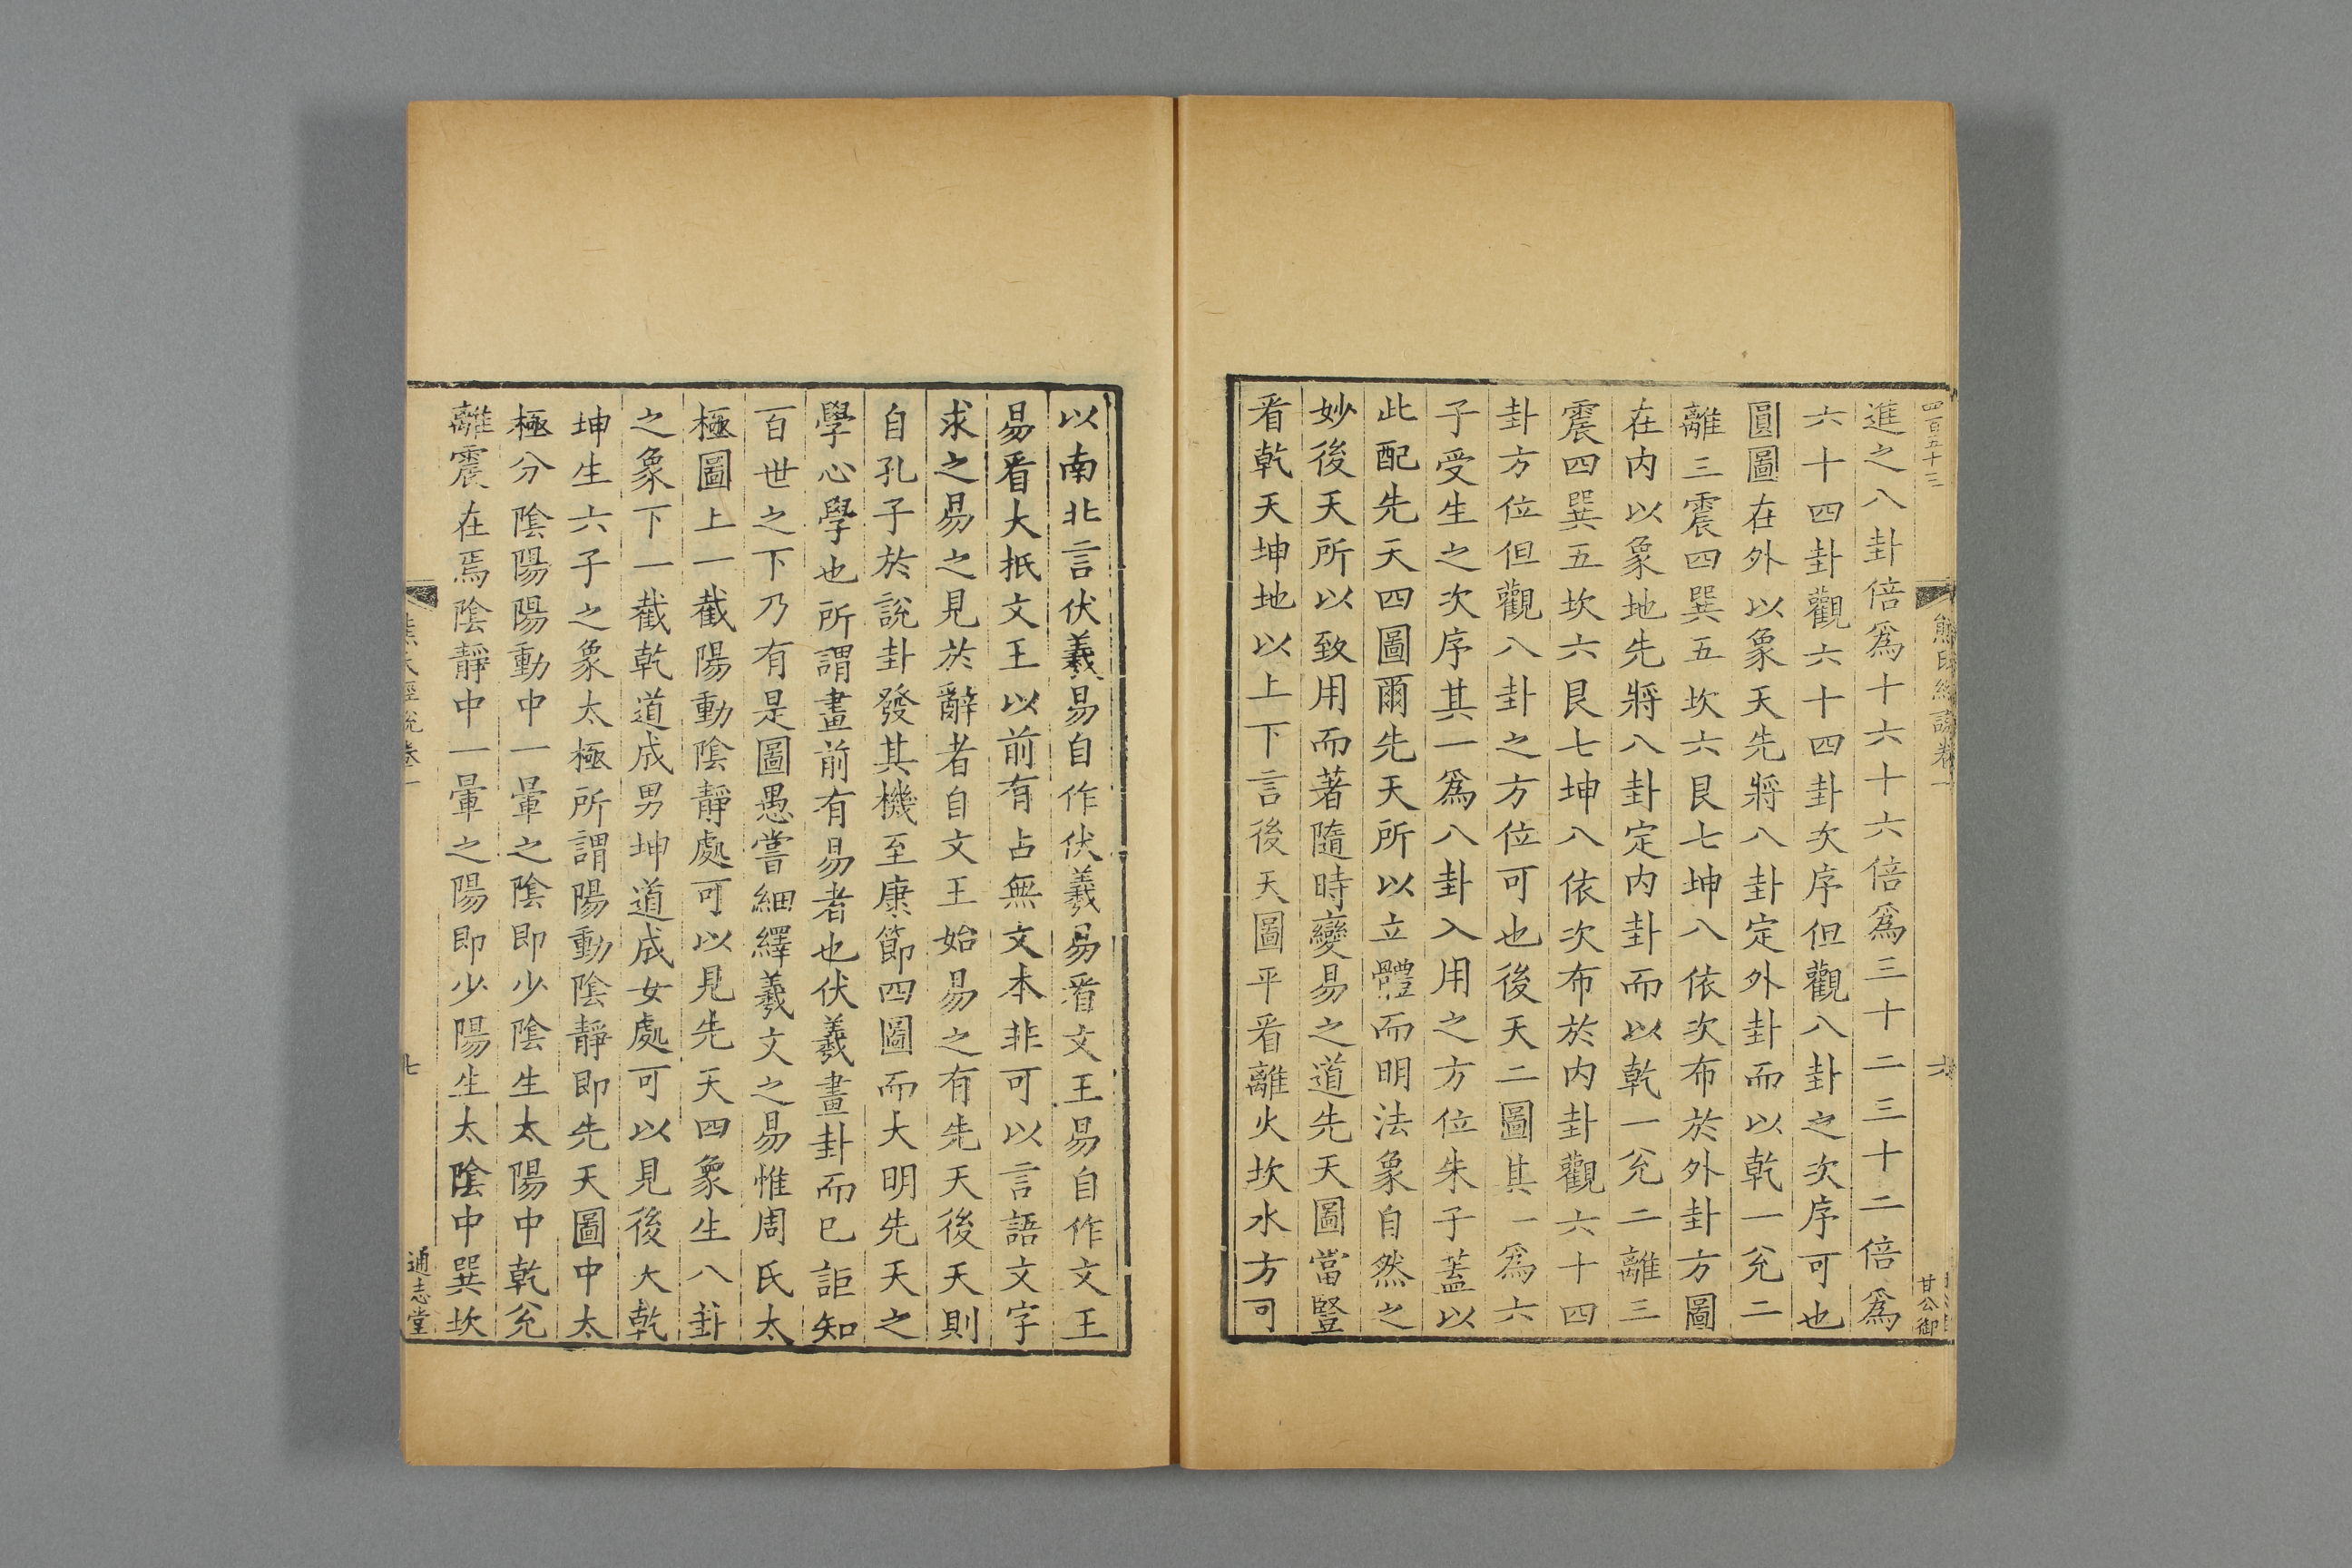 四百五十三
熊氏經說卷一
六
甘公御
進之八卦倍爲十六十六倍爲三十二三十二倍爲
六十四卦觀六十四卦次序但觀八卦之次序可也
圓圖在外以象天先將八卦定外卦而以乾一兊二
離三震四巽五坎六艮七坤八依次布於外卦方圖
在内以象地先將八卦定内卦而以乾一兊二離三
震四巽五坎六艮七坤八依次布於内卦觀六十四
卦方位但觀八卦之方位可也後天二圖其一爲六
子受生之次序其一爲八卦入用之方位朱子蓋以
此配先天四圖爾先天所以立體而明法象自然之
妙後天所以致用而著隨時變易之道先天圖當豎
看乾天坤地以上下言後天圖平看離火坎水方可
以南北言伏羲易自作伏羲易看文王易自作文王
易看大抵文王以前有占無文本非可以言語文字
求之易之見於辭者自文王始易之有先天後天則
自孔子於說卦發其機至康節四圖而大明先天之
學心學也所謂畫前有易者也伏羲畫卦而已詎知
百世之下乃有是圖愚嘗細繹羲文之易惟周氏太
極圖上一截陽動陰靜處可以見先天四象生八卦
之象下一截乾道成男坤道成女處可以見後天乾
坤生六子之象太極所謂陽動陰靜即先天圖中太
極分陰陽陽動中一暈之陰即少陰生太陽中乾兊
離震在焉陰靜中一暈之陽即少陽生太陰中巽坎
熊氏經說卷一
七
通志堂